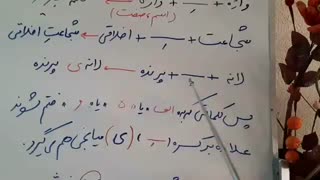 واژه + ـِ + واژه
(اسم، صفت)
شجاعت + ـِ + اخلاقی ← شجاعتِ اخلاقی
لانه + ـِ + پرنده ← لانه‌ی پرنده
پس کلماتی که به ختم شوند
علاوه بر کسره ـِ ، (ی) میانجی هم می‌گیرد.